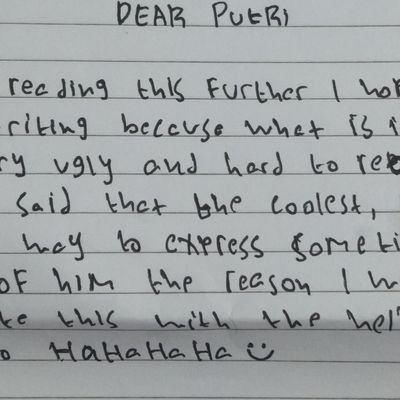 DEAR PUTRI
reading this further I
riting because what is
ugly and hard to
said that the coolest,
way to express
of him the reason I
this with the
HaHaHaHa☺